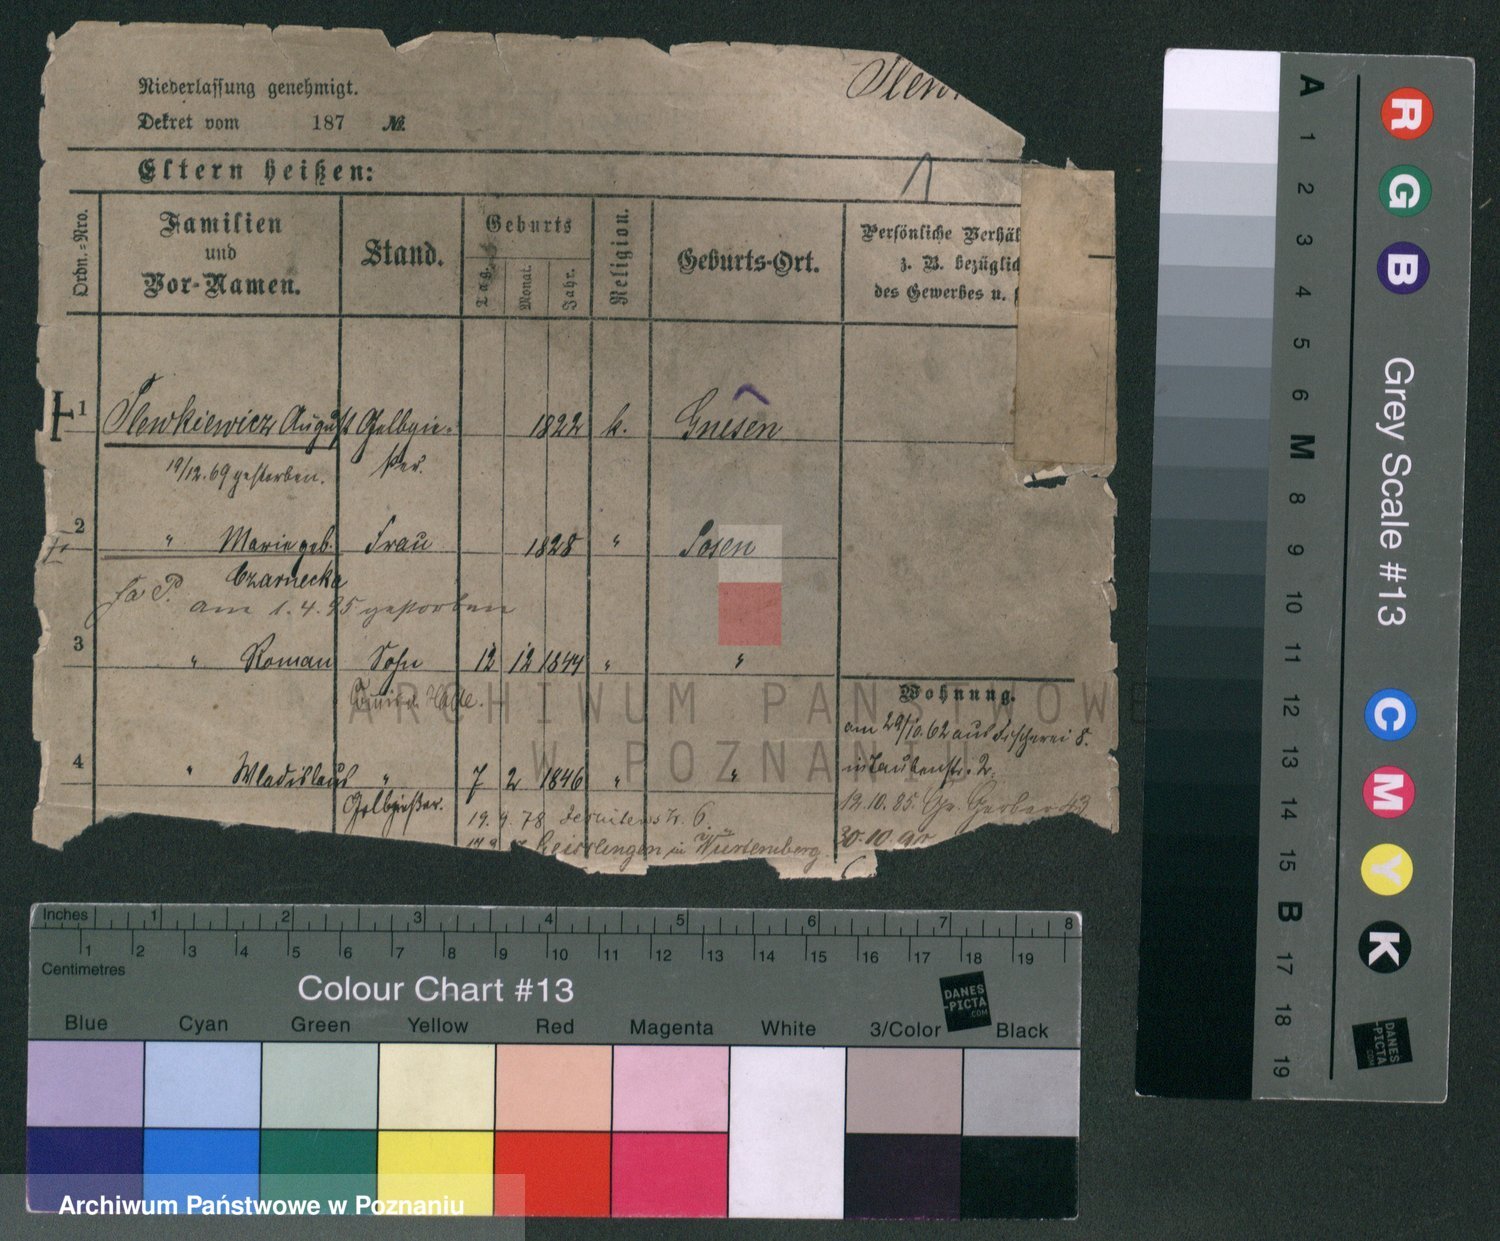 Niederlassung genehmigt.
Dekret vom 187 №
Eltern heißen:
Ordn.-Nro.
Familien und Vor-Namen.
Stand.
Geburts
Tag.
Monat.
Jahr.
Religion.
Geburts-Ort.
Persönliche Verhäl
z. B. bezüglich
des Gewerbes u.
1 August Gelbgie- 1822 k. Gnesen
ßer.
19/12.69 gestorben.
2 " Marie geb. Frau 1828 " Posen
Czarnecka
am 1.4.95 gestorben
3 " Roman Sohn 12 12 1844 " "
4 " Wladislaus " 7 2 1846 " "
Gelbgießer.
19.9.78 Jesuitenstr. 6.
Geisslingen in Würtemberg.
Wohnung.
am 29/10.62 aus Fischerei 8.
in Taubenstr. 2.
12.10.85. Gr. Gerber 43
30.10.90
ARCHIWUM PAŃSTWOWE
W POZNANIU
Inches 1 2 3 4 5 6 7 8
1 2 3 4 5 6 7 8 9 10 11 12 13 14 15 16 17 18 19
Centimetres
Colour Chart #13
DANES
-PICTA
.COM
Blue Cyan Green Yellow Red Magenta White 3/Color Black
Archiwum Państwowe w Poznaniu
A 1 2 3 4 5 6 M 8 9 10 11 12 13 14 15 B 17 18 19
R G B
Grey Scale #13
C M Y K
DANES
-PICTA
.COM